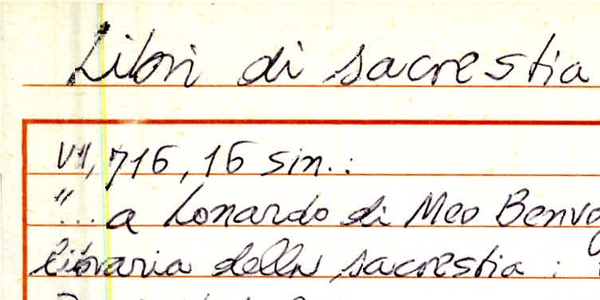 Libri di sacrestia
VI, 716, 16 sin.:
"... a Lonardo di Meo
libraria della sacrestia :